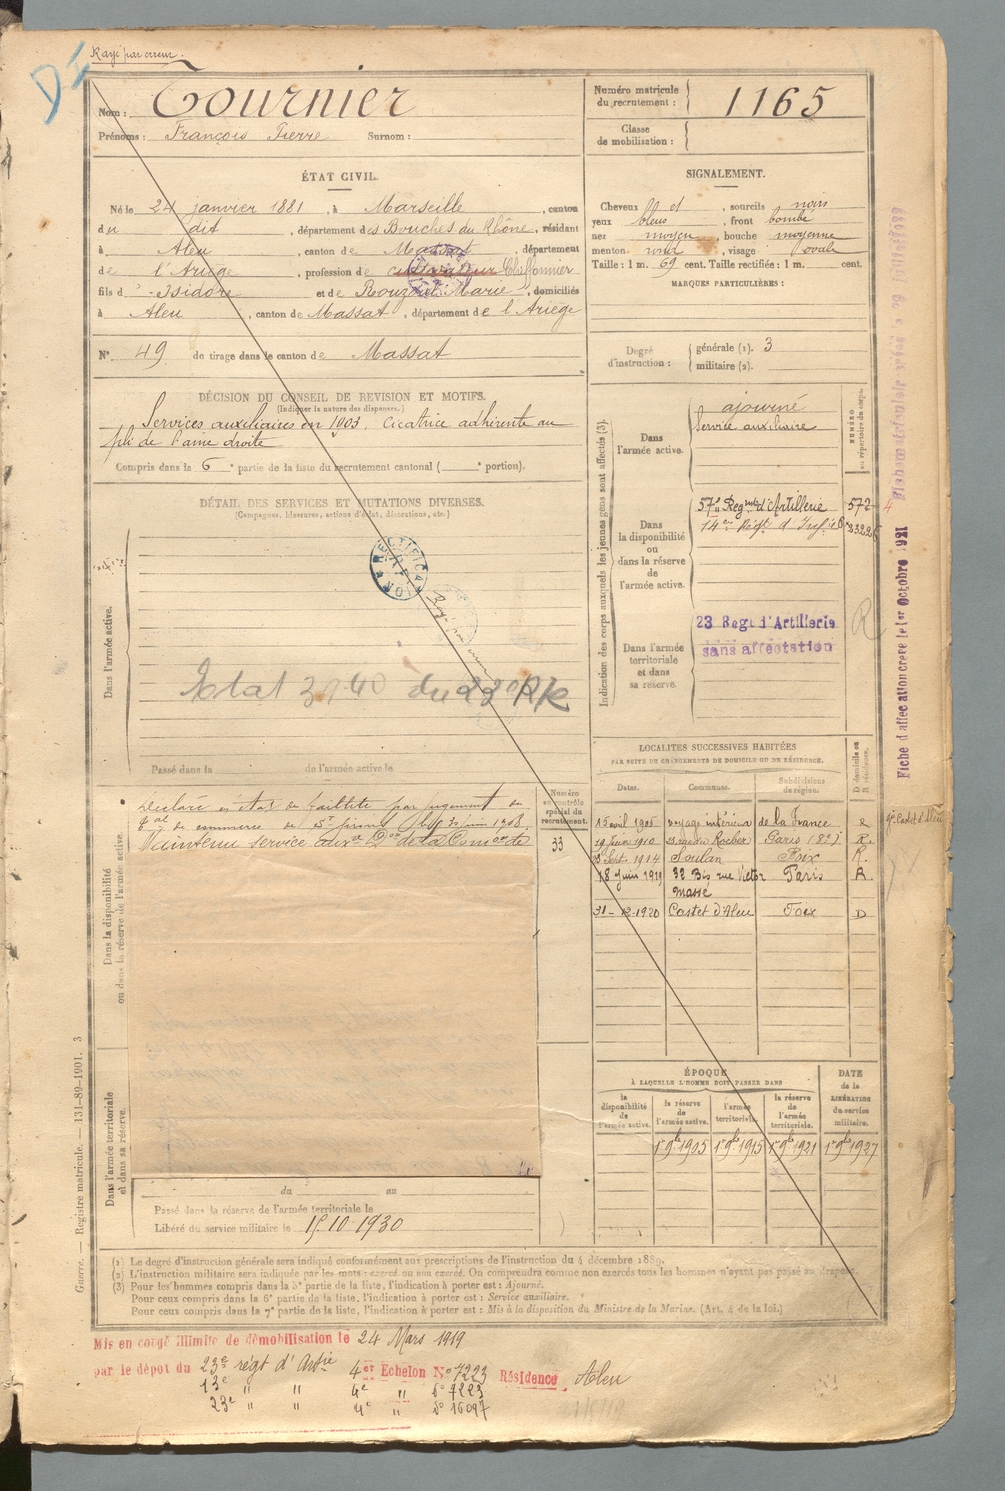 Rayé par erreur.
DI
Nom : Tournier
Prénoms : François Pierre Surnom :
Numéro matricule du recrutement : 1165
Classe de mobilisation :
ÉTAT CIVIL.
Né le 24 janvier 1881, à Marseille, canton
du dit, département des Bouches du Rhône, résidant
à Aleu, canton de Massat, département
de l'Ariège, profession de cultivateur
fils d'Isidore et de Rouzoul Marie, domiciliés
à Aleu, canton de Massat, département de l'Ariège
N° 49 de tirage dans le canton de Massat
SIGNALEMENT.
Cheveux et, sourcils noirs
yeux bleus, front bombé
nez moyen, bouche moyenne
menton rond, visage ovale
Taille : 1 m. 69 cent. Taille rectifiée : 1 m. cent.
MARQUES PARTICULIÈRES :
Degré d'instruction : générale (1). 3
militaire (2).
DÉCISION DU CONSEIL DE REVISION ET MOTIFS.
(Indiquer la nature des dispenses.)
Services auxiliaires en 1903. Cicatrice adhérente au
pli de l'aine droite
Compris dans la 6e partie de la liste du recrutement cantonal ( e portion).
DÉTAIL DES SERVICES ET MUTATIONS DIVERSES.
(Campagnes, blessures, actions d'éclat, décorations, etc.)
Dans l'armée active.
RECTIFICATION
Etat 3140 du 23e RR
Passé dans la de l'armée active le
Indication des corps auxquels les jeunes gens sont affectés (3).
NUMÉRO au répertoire du corps.
Dans l'armée active.
ajourné
Service auxiliaire
Dans la disponibilité ou dans la réserve de l'armée active.
57e Regmt d'Artillerie 572
14e Régt d'Inf
Dans l'armée territoriale et dans sa réserve.
23 Regt d'Artillerie
sans affectation
R
Fiche d'affectation créée le 1er Octobre 1921
LOCALITÉS SUCCESSIVES HABITÉES
PAR SUITE DE CHANGEMENTS DE DOMICILE OU DE RÉSIDENCE.
Dates. Communes. Subdivisions de région. D domicile ou R résidence.
15 avril 1905 voyage intérieur de la France R
19 juin 1910 23 rue du Rocher Paris (8e) R.
23 Sept. 1914 Soulan Foix R.
18 juin 1919 32 Bis rue Victor Massé Paris R
31-12-1920 Castet d'Aleu Foix D
Dans la disponibilité ou dans la réserve de l'armée active.
Numéro au contrôle spécial du recrutement.
33
Déclaré en état de faillite par jugement du
tal de commerce de St Girons du 30 juin 1908.
Maintenu service auxre Don de la Comon de
Dans l'armée territoriale et dans sa réserve.
du au
Passé dans la réserve de l'armée territoriale le
Libéré du service militaire le 15.10.1930
ÉPOQUE
À LAQUELLE L'HOMME DOIT PASSER DANS
DATE de la LIBÉRATION du service militaire.
la disponibilité de l'armée active. la réserve de l'armée active. l'armée territoriale. la réserve de l'armée territoriale.
1er 9bre 1905 1er 9bre 1915 1er 9bre 1921 1er 9bre 1927
Guerre. — Registre matricule. — 131-89-1901. 3
(1) Le degré d'instruction générale sera indiqué conformément aux prescriptions de l'instruction du 4 décembre 1889.
(2) L'instruction militaire sera indiquée par les mots : exercé, ou non exercé. On comprendra comme non exercés tous les hommes n'ayant pas passé au drapeau.
(3) Pour les hommes compris dans la 5e partie de la liste, l'indication à porter est : Ajourné.
Pour ceux compris dans la 6e partie de la liste, l'indication à porter est : Service auxiliaire.
Pour ceux compris dans la 7e partie de la liste, l'indication à porter est : Mis à la disposition du Ministre de la Marine. (Art. 4 de la loi.)
Mis en congé illimité de démobilisation le 24 Mars 1919
par le dépôt du 23e régt d'Artie 4er Echelon N° 7223 Résidence Aleu
13e " " 4e " do 7223
23e " " 4e " do 16097